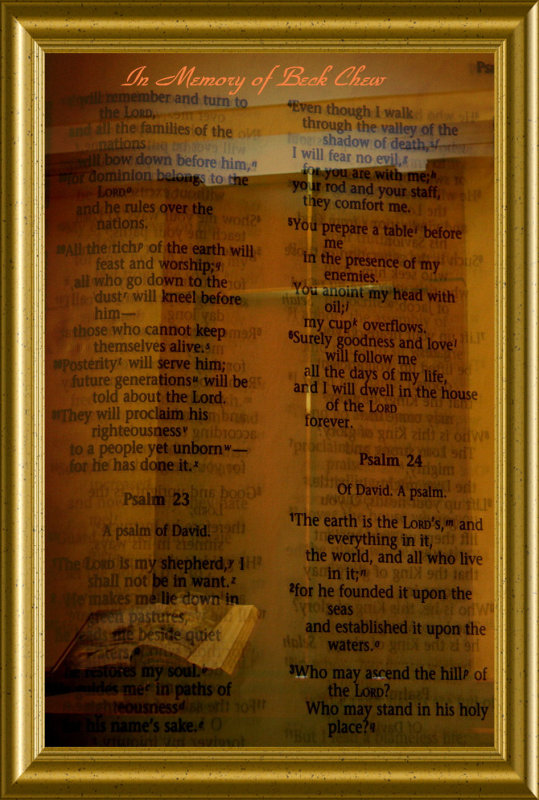 In Memory of Beck Chew
will remember and turn to
the LORD,
and all the families of the
nations
will bow down before him,ⁿ
for dominion belongs to the
LORDᵒ
and he rules over the
nations.
²⁹All the richᵖ of the earth will
feast and worship;q
all who go down to the
dustʳ will kneel before
him—
those who cannot keep
themselves alive.ˢ
³⁰Posterityᵗ will serve him;
future generationsᵘ will be
told about the Lord.
³¹They will proclaim his
righteousnessᵛ
to a people yet unbornʷ—
for he has done it.ˣ
Psalm 23
A psalm of David.
The LORD is my shepherd,ʸ I
shall not be in want.ᶻ
He makes me lie down in
green pastures,
leads me beside quiet
waters,
he restores my soul.
guides meᶜ in paths of
righteousnessᵈ
for his name's sake.ᵉ
⁴Even though I walk
through the valley of the
shadow of death,ᶠ
I will fear no evil,ᵍ
for you are with me;ʰ
your rod and your staff,
they comfort me.
⁵You prepare a tableⁱ before
me
in the presence of my
enemies.
You anoint my head with
oil;ʲ
my cupᵏ overflows.
⁶Surely goodness and loveˡ
will follow me
all the days of my life,
and I will dwell in the house
of the LORD
forever.
Psalm 24
Of David. A psalm.
¹The earth is the LORD'S,ᵐ and
everything in it,
the world, and all who live
in it;ⁿ
²for he founded it upon the
seas
and established it upon the
waters.ᵒ
³Who may ascend the hillᵖ of
the LORD?
Who may stand in his holy
place?q